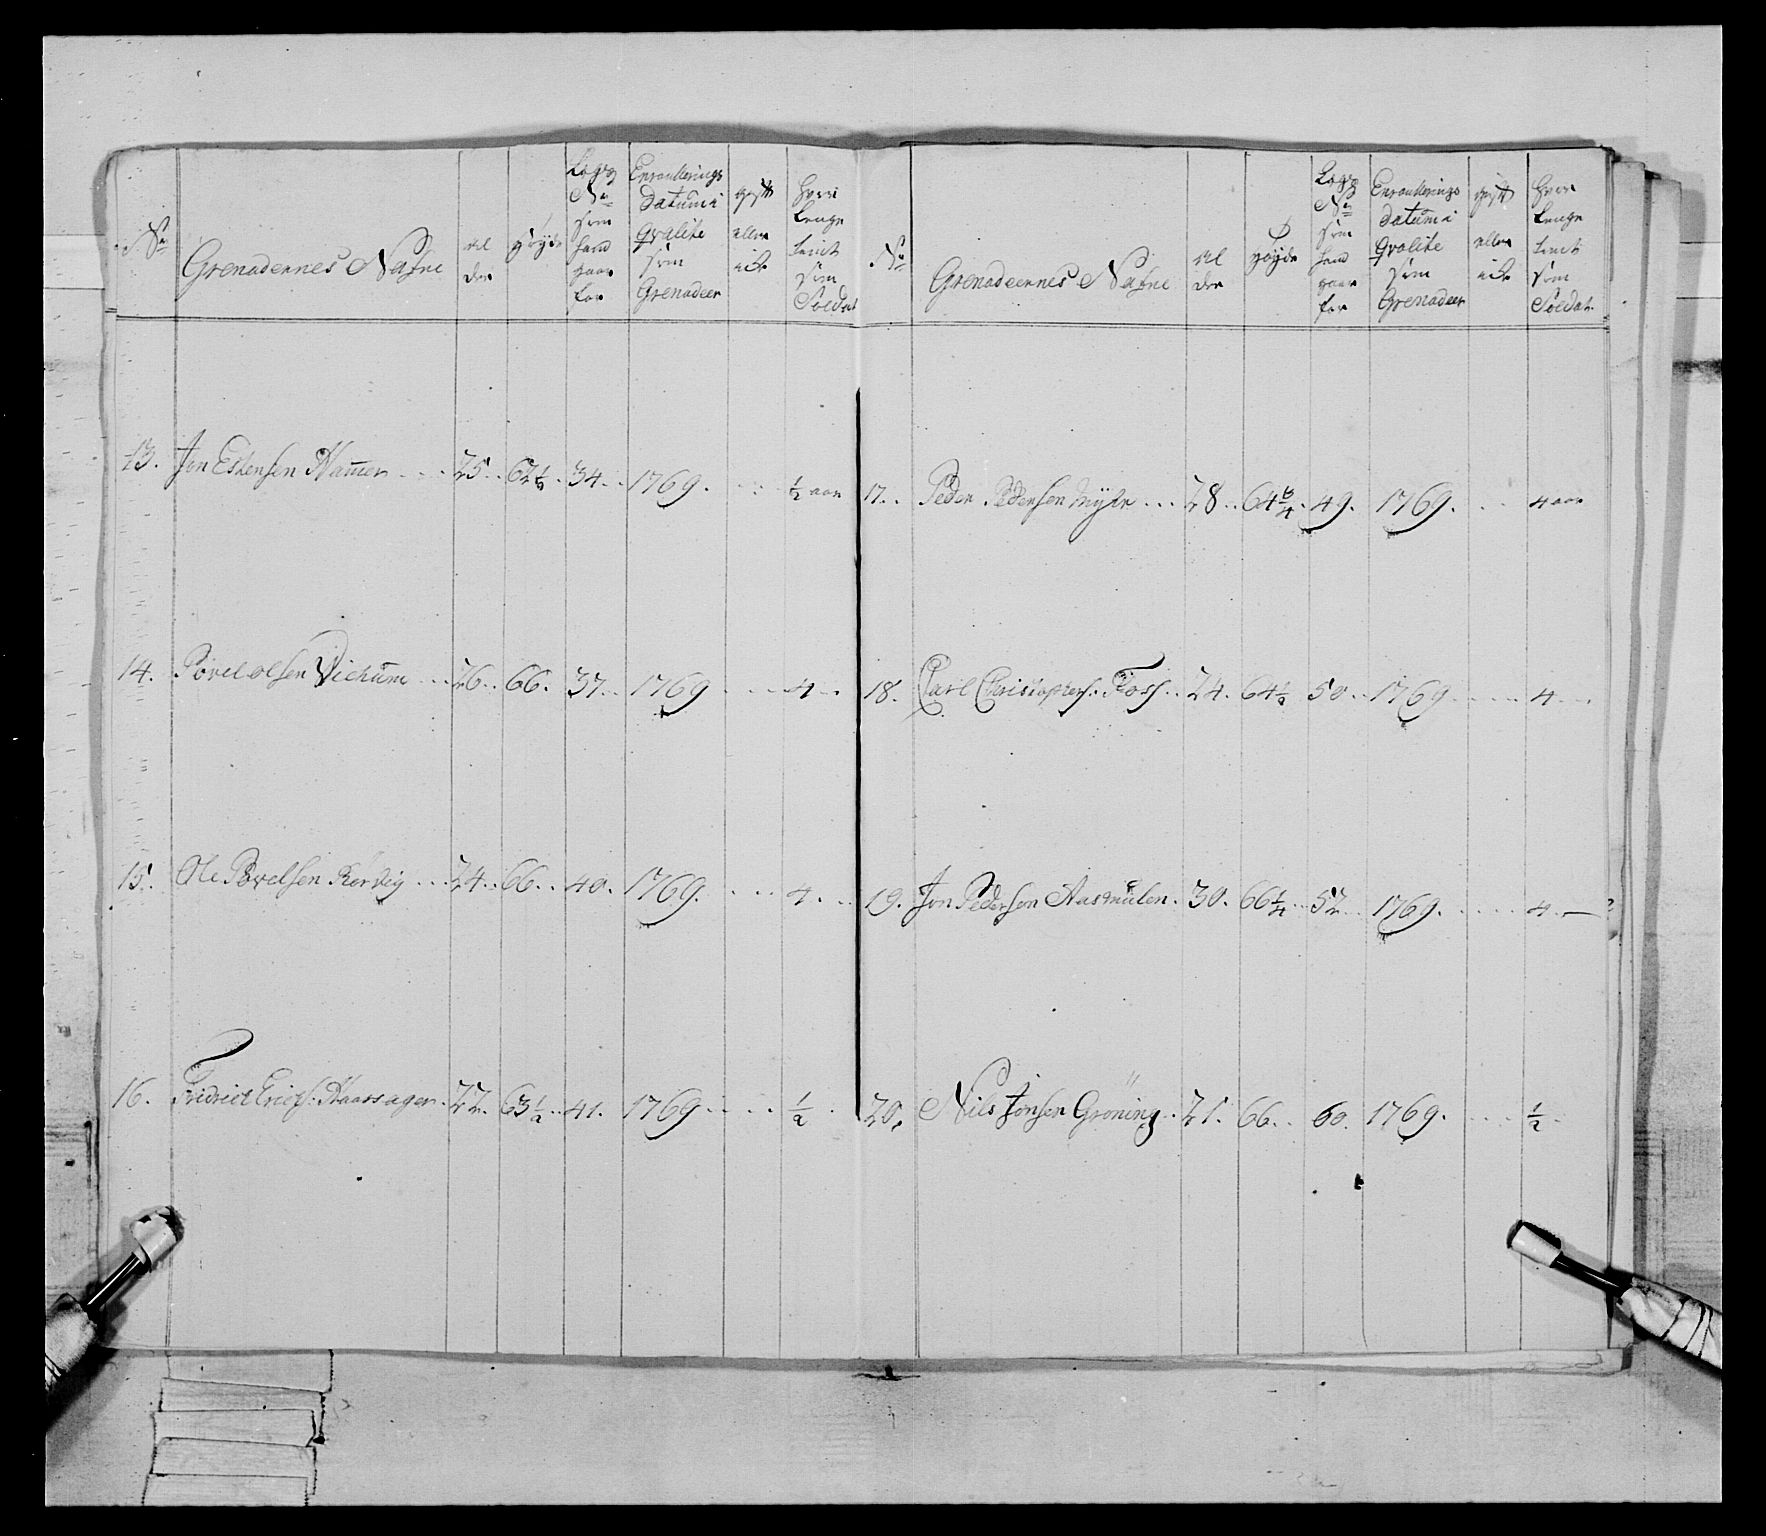 No
Grenadeernes Nafne
Al
der
Høyde
Lægs
No
som
hand
gaar
for
Enroullerings
Datum i
Qvalite
som
Grenadeer
gift
eller
icke
Hvor
Lenge
tient
som
Soldat
13. Jon Estensen Hamer 25 62½ 34 1769. ½ aar
14. Povel Olsen Vichum 26 66. 37 1769 4
15. Ole Povelsen Rørvig 24 66 40. 1769. 4.
16. Fridrich Erichs: Haarsager 22 63½ 41. 1769 ½
No
Grenadeernes Nafne
Al
der
Høyde
Lægs
No
som
hand
gaar
for
Enroullerings
Datum i
Qvalite
som
Grenadeer
gift
eller
icke
Hvor
Lenge
tient
som
Soldat
17. Peder Pedersen Myhr 28 64¾ 49. 1769. 4 aar
18. Carl Christophers: Foss 24. 64½ 50 1769 4
19. Jon Pedersen Aasmulen. 30. 66¼ 52 1769. 4 —
20. Nils Jonsen Grøning 21. 66 60. 1769. ½